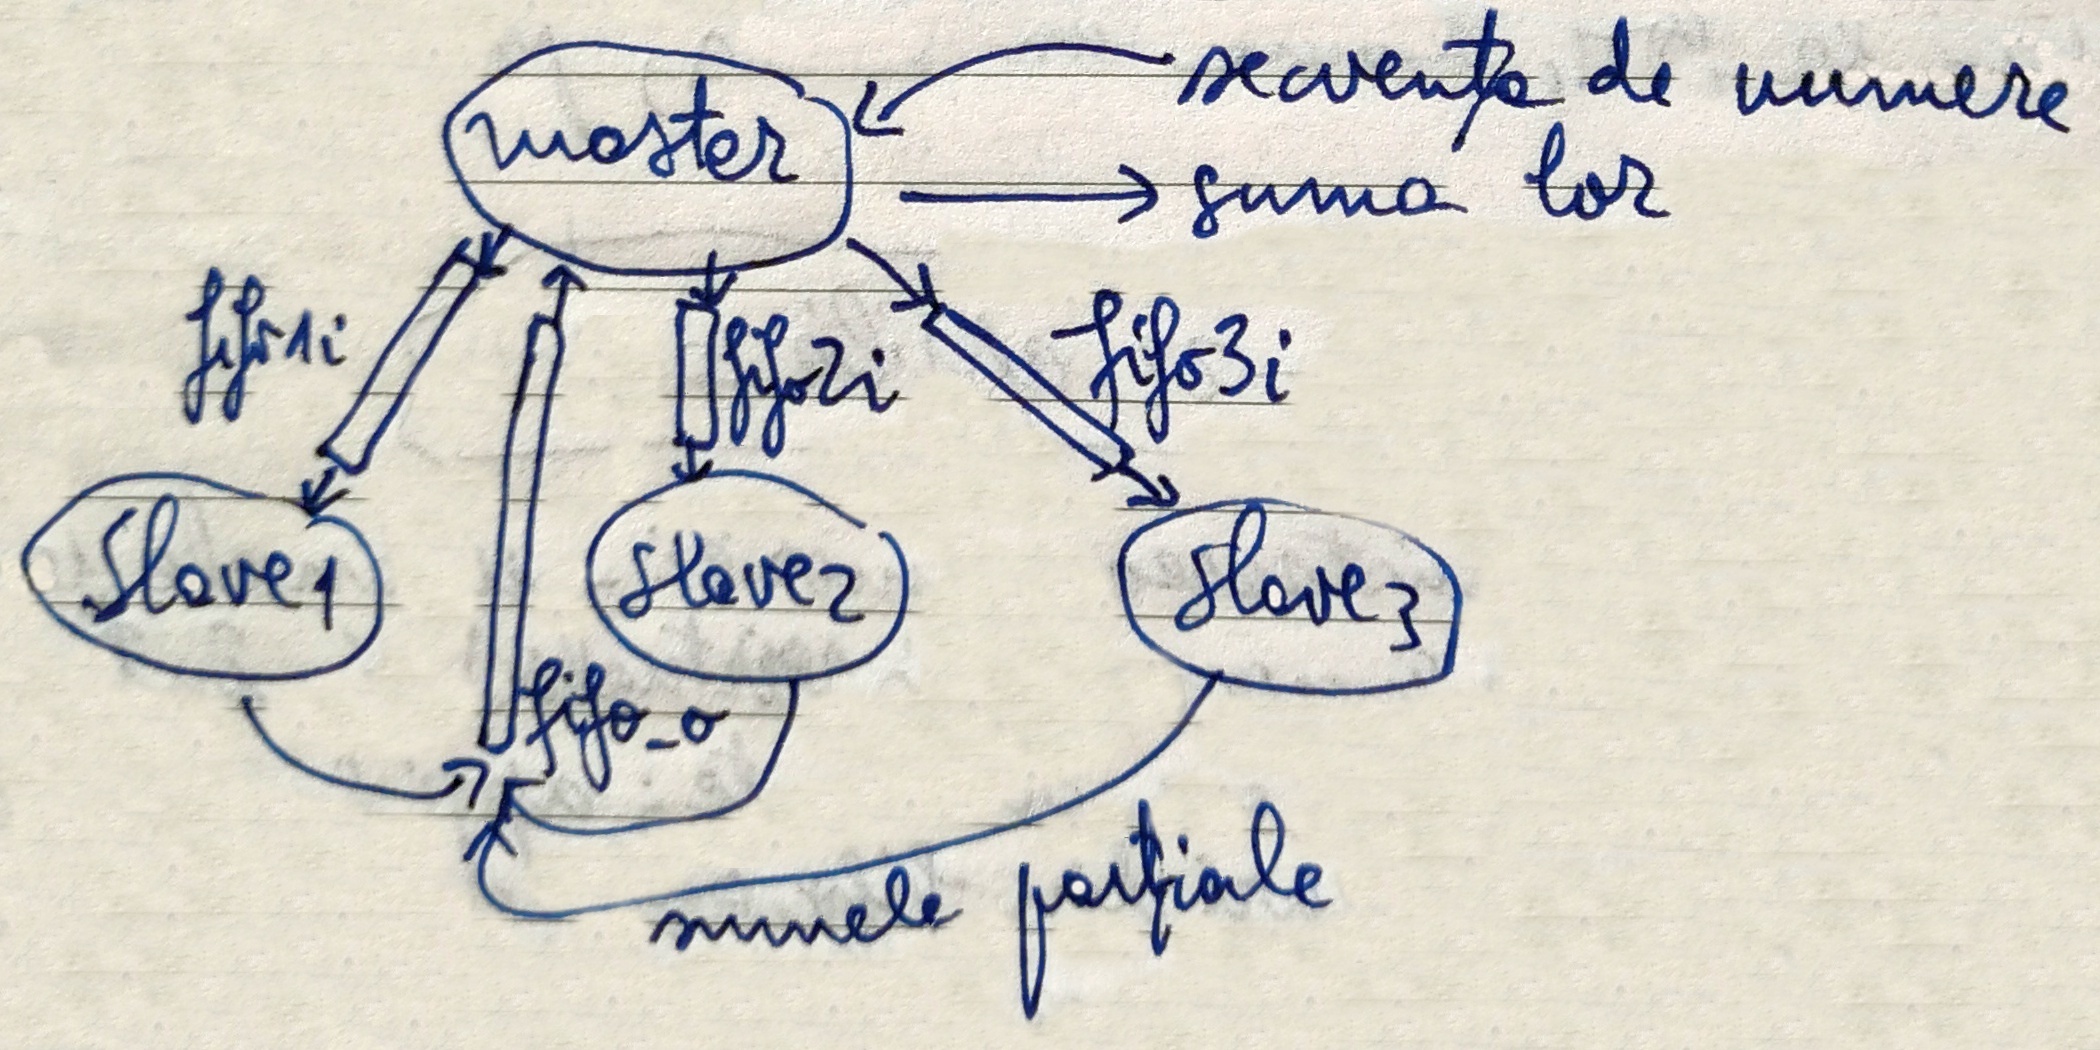 master
secvența de numere
suma lor
fifo1i
fifo2i
fifo3i
Slave1
slave2
slave3
fifo_o
sumele parțiale